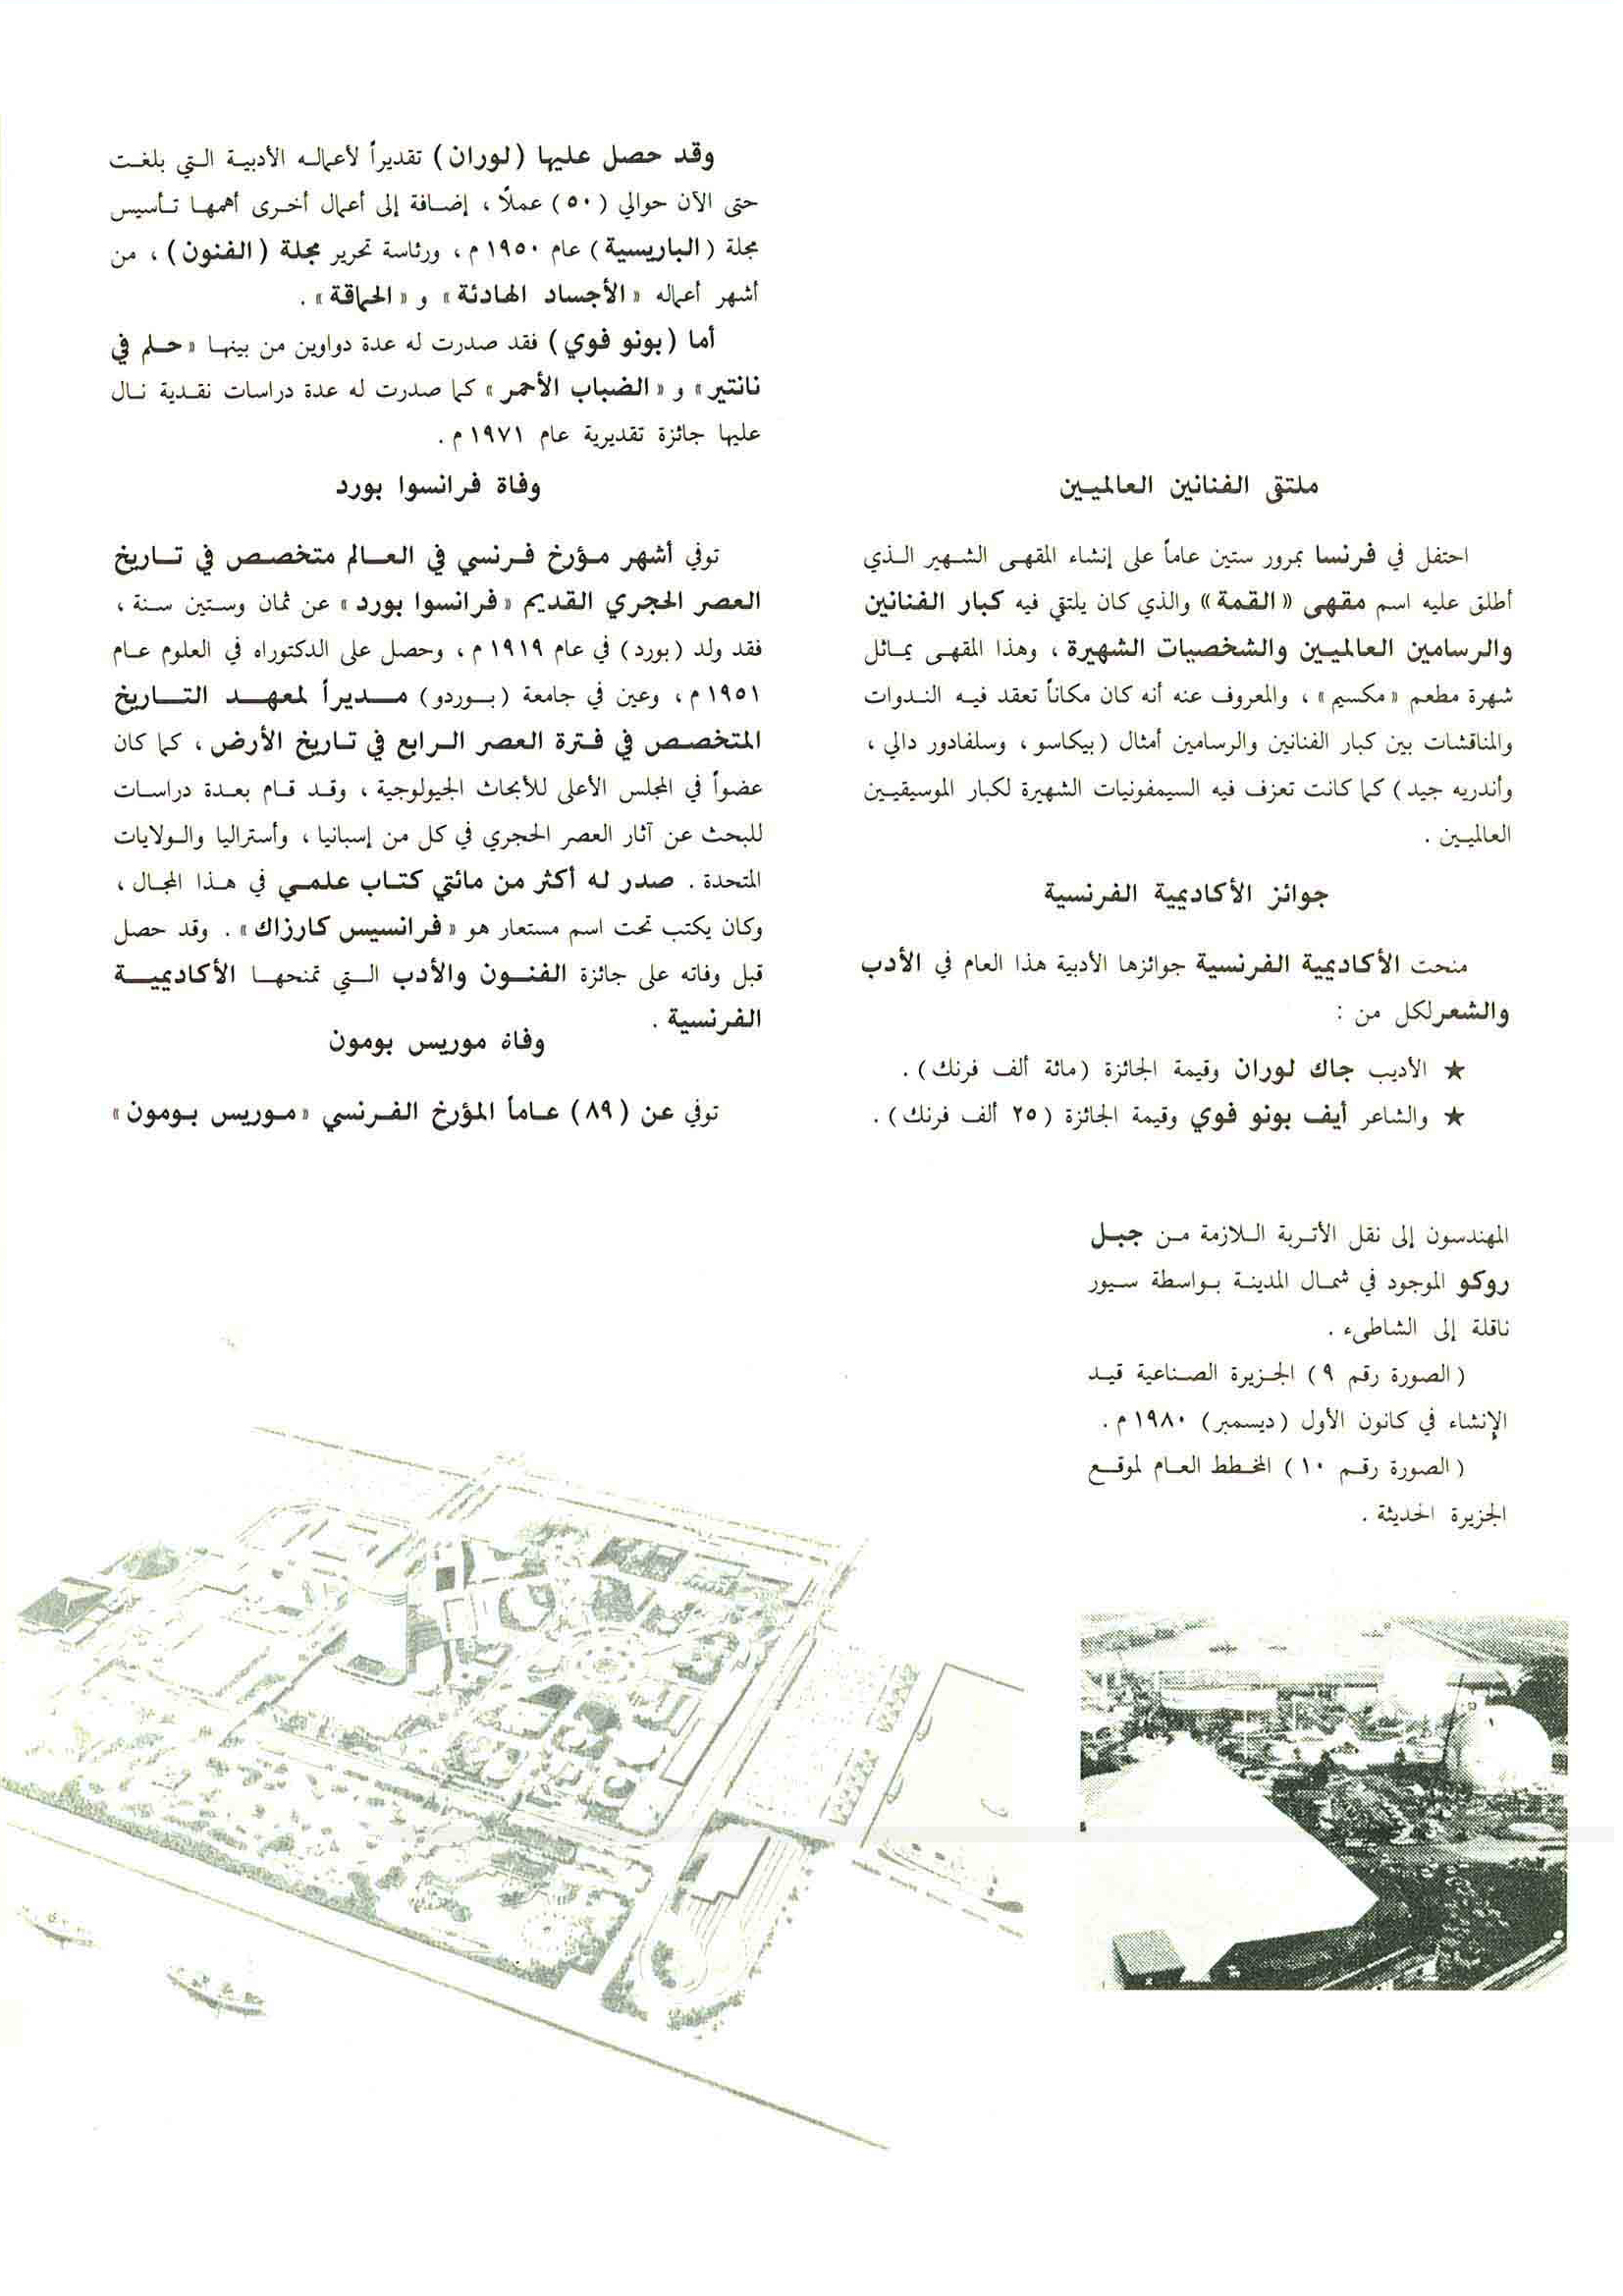 ملتقى الفنانين العالميين
احتفل في فرنسا بمرور ستين عاماً على إنشاء المقهى الشهير الذي
أطلق عليه اسم مقهى «القمة» والذي كان يلتقي فيه كبار الفنانين
والرسامين العالميين والشخصيات الشهيرة ، وهذا المقهى يماثل
شهرة مطعم «مكسيم» ، والمعروف عنه أنه كان مكاناً تعقد فيه الندوات
والمناقشات بين كبار الفنانين والرسامين أمثال (بيكاسو ، وسلفادور دالي ،
وأندريه جيد) كما كانت تعزف فيه السيمفونيات الشهيرة لكبار الموسيقيين
العالميين .
جوائز الأكاديمية الفرنسية
منحت الأكاديمية الفرنسية جوائزها الأدبية هذا العام في الأدب
والشعر لكل من :
★ الأديب جاك لوران وقيمة الجائزة (مائة ألف فرنك) .
★ والشاعر أيف بونو فوي وقيمة الجائزة (٢٥ ألف فرنك) .
وقد حصل عليها (لوران) تقديراً لأعماله الأدبية التي بلغت
حتى الآن حوالي (٥٠) عملاً ، إضافة إلى أعمال أخرى أهمها تأسيس
مجلة (الباريسية) عام ١٩٥٠ م ، ورئاسة تحرير مجلة (الفنون) ، من
أشهر أعماله «الأجساد الهادئة» و «الحماقة» .
أما (بونو فوي) فقد صدرت له عدة دواوين من بينها «حلم في
نانتير» و «الضباب الأحمر» كما صدرت له عدة دراسات نقدية نال
عليها جائزة تقديرية عام ١٩٧١ م .
وفاة فرانسوا بورد
توفي أشهر مؤرخ فرنسي في العالم متخصص في تاريخ
العصر الحجري القديم «فرانسوا بورد» عن ثمان وستين سنة ،
فقد ولد (بورد) في عام ١٩١٩ م ، وحصل على الدكتوراه في العلوم عام
١٩٥١ م ، وعين في جامعة (بوردو) مديراً لمعهد التاريخ
المتخصص في فترة العصر الرابع في تاريخ الأرض ، كما كان
عضواً في المجلس الأعلى للأبحاث الجيولوجية ، وقد قام بعدة دراسات
للبحث عن آثار العصر الحجري في كل من إسبانيا ، وأستراليا والولايات
المتحدة . صدر له أكثر من مائتي كتاب علمي في هذا المجال ،
وكان يكتب تحت اسم مستعار هو «فرانسيس كارزاك» . وقد حصل
قبل وفاته على جائزة الفنون والأدب التي تمنحها الأكاديمية
الفرنسية .
وفاة موريس بومون
توفي عن (٨٩) عاماً المؤرخ الفرنسي «موريس بومون»
المهندسون إلى نقل الأتربة اللازمة من جبل
روكو الموجود في شمال المدينة بواسطة سيور
ناقلة إلى الشاطىء .
(الصورة رقم ٩) الجزيرة الصناعية قيد
الإنشاء في كانون الأول (ديسمبر) ١٩٨٠ م .
(الصورة رقم ١٠) المخطط العام لموقع
الجزيرة الحديثة .